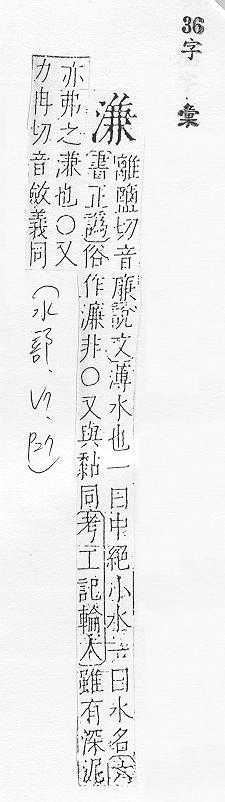 36字彙
溓
離鹽切音廉說文薄水也一曰中絕小水一曰水名六
書正譌俗作濂非○又與黏同考工記輪人雖有深泥
亦弗之溓也○又
力冉切音斂義同
(水部